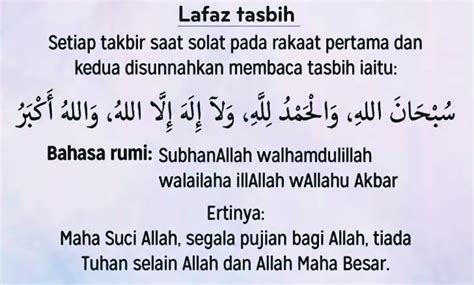 Lafaz tasbih
Setiap takbir saat solat pada rakaat pertama dan
kedua disunnahkan membaca tasbih iaitu:
سُبْحَانَ اللهِ، وَالْحَمْدُ لِلَّهِ، وَلَآ إِلَهَ إِلَّا اللهُ، وَاللهُ أَكْبَرُ
Bahasa rumi: SubhanAllah walhamdulillah
walailaha illAllah wAllahu Akbar
Ertinya:
Maha Suci Allah, segala pujian bagi Allah, tiada
Tuhan selain Allah dan Allah Maha Besar.